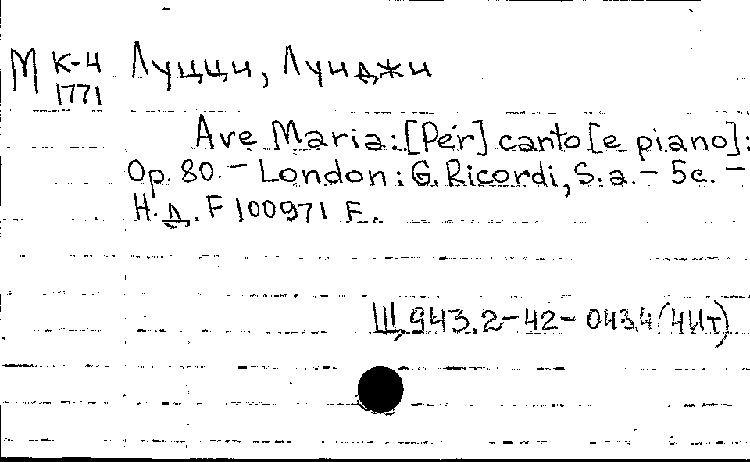 М К-4 Луцци, Луиджи
1771
Ave Maria: [Per] canto [e piano]:
Op. 80. - London: G. Ricordi, S. a. - 5c. -
Н. Д. F 100971 F.
Щ943.2-42-043.4(4Ит)